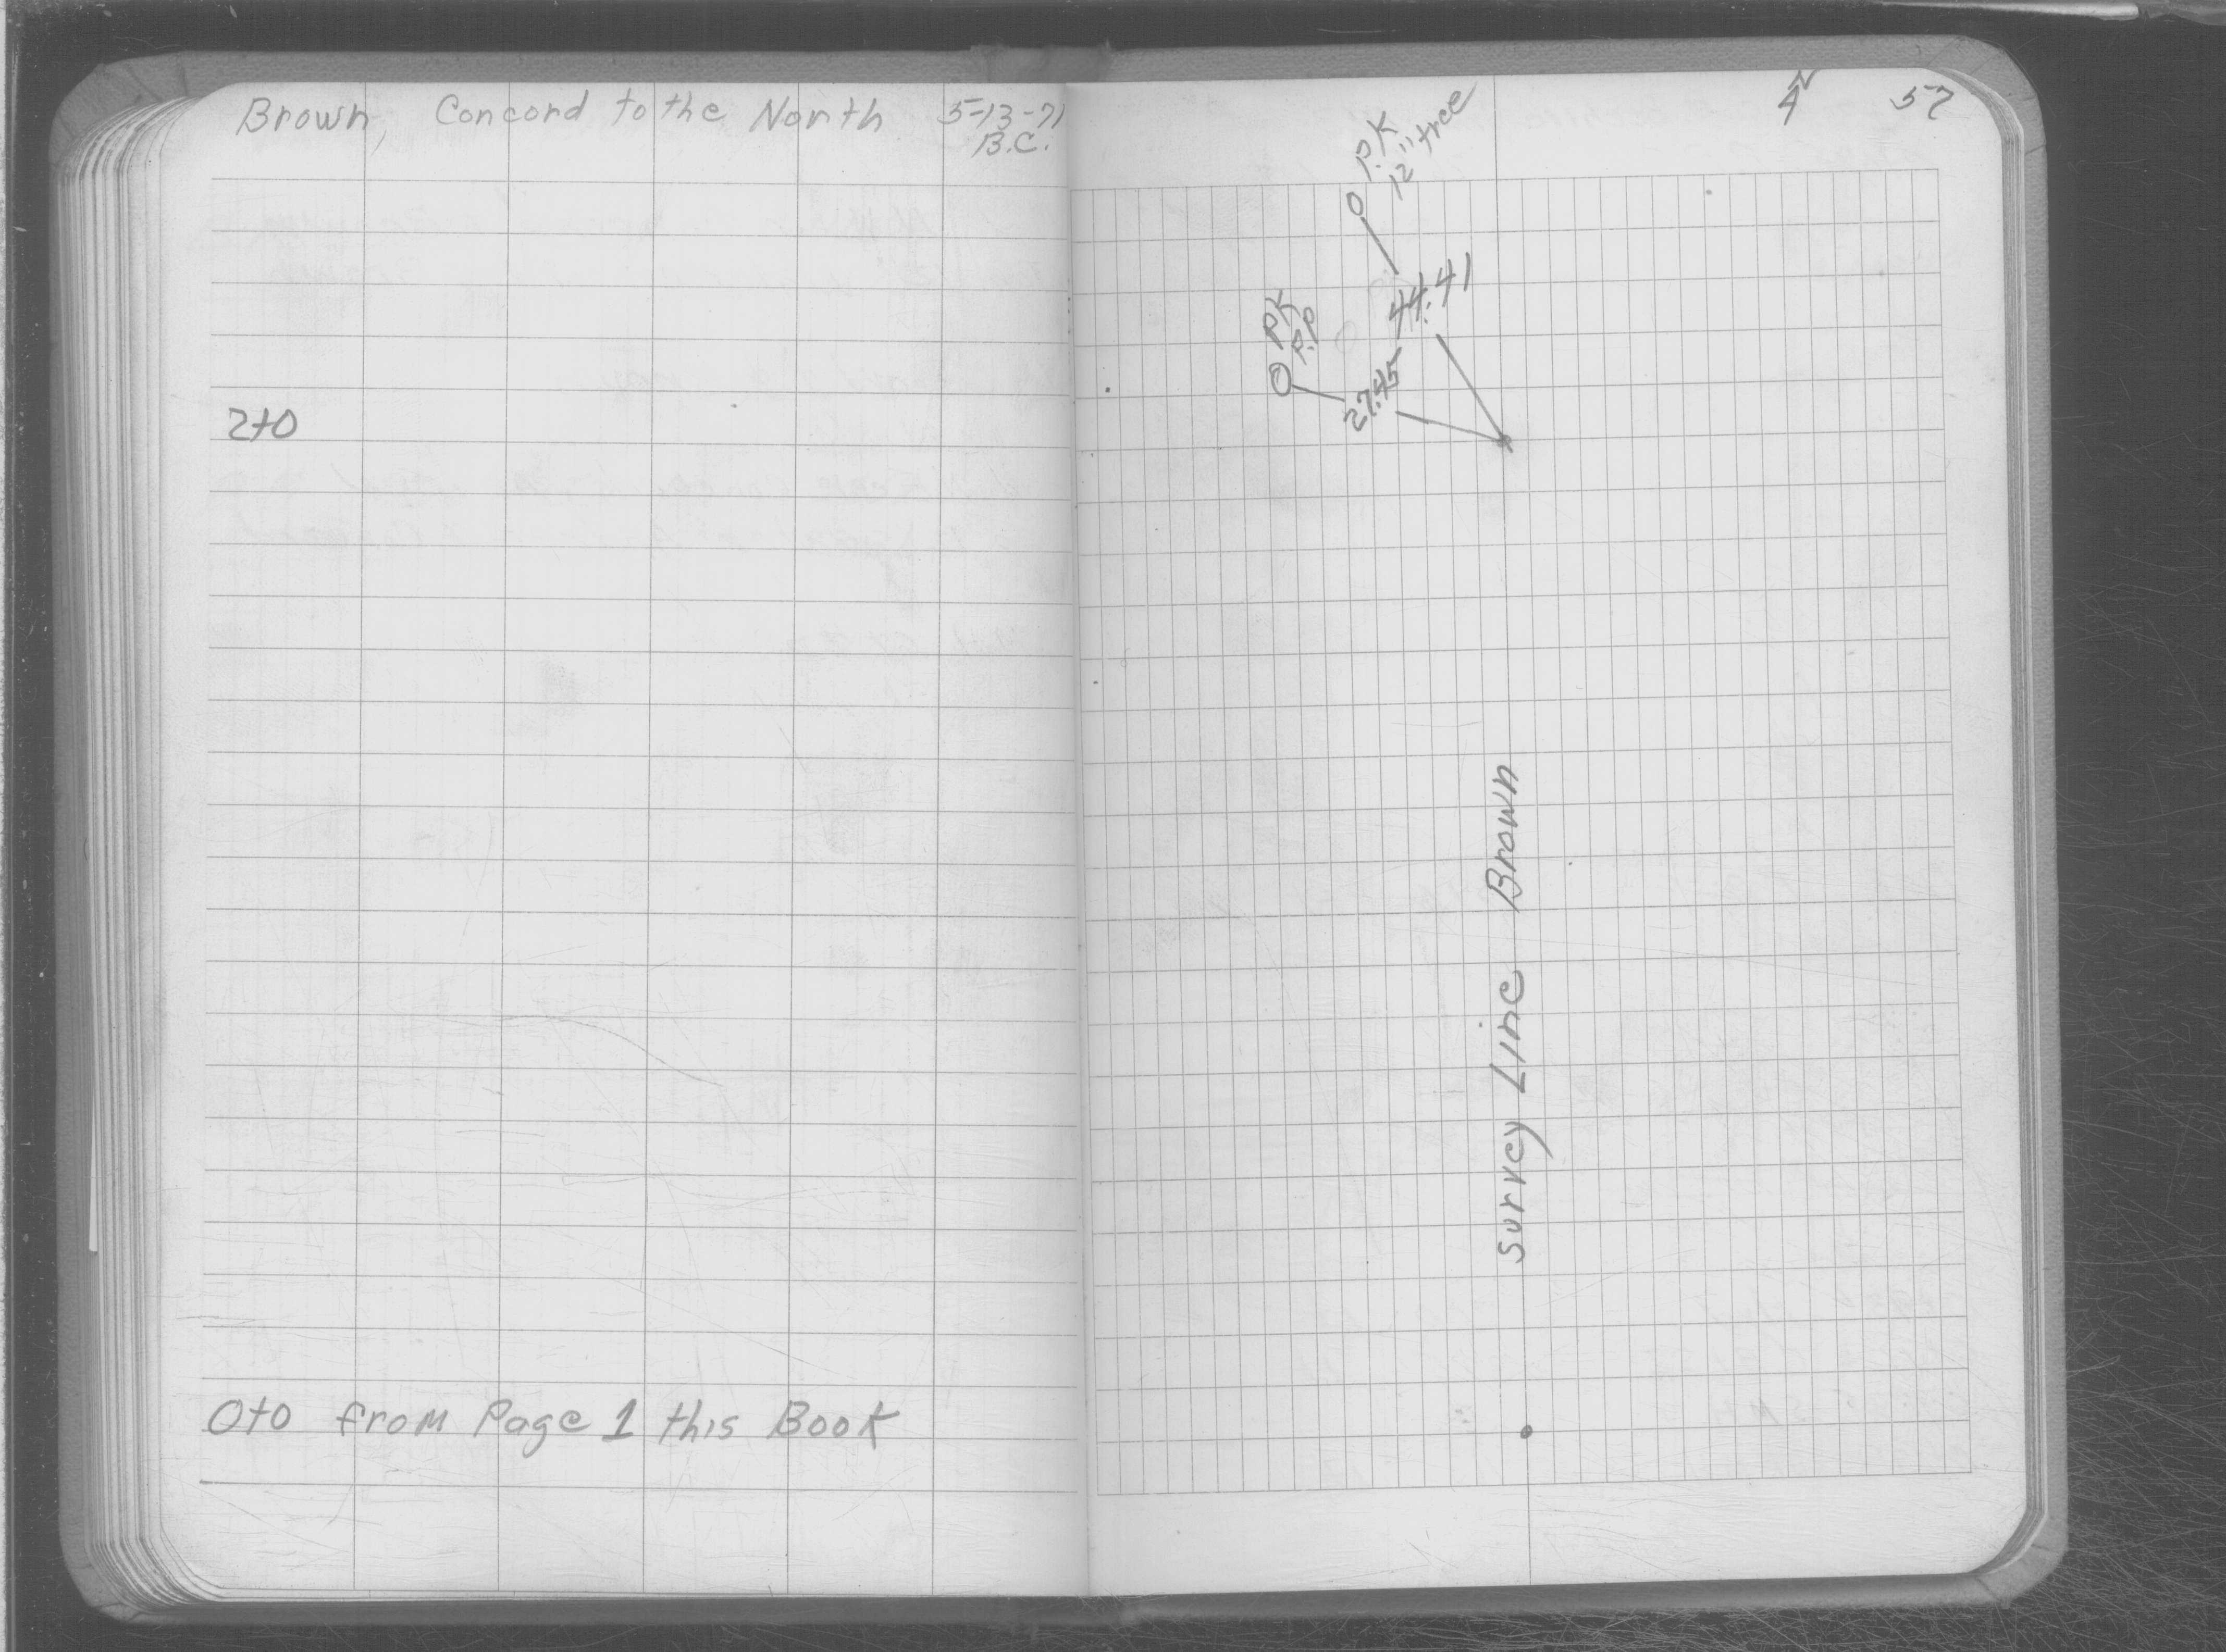 Brown, Concord to the North 5-13-71
B.C.
2+0
0+0 from Page 1 this Book
57
P.K
12" tree
44.41
PK
P.P
27.45
Survey Line Brown